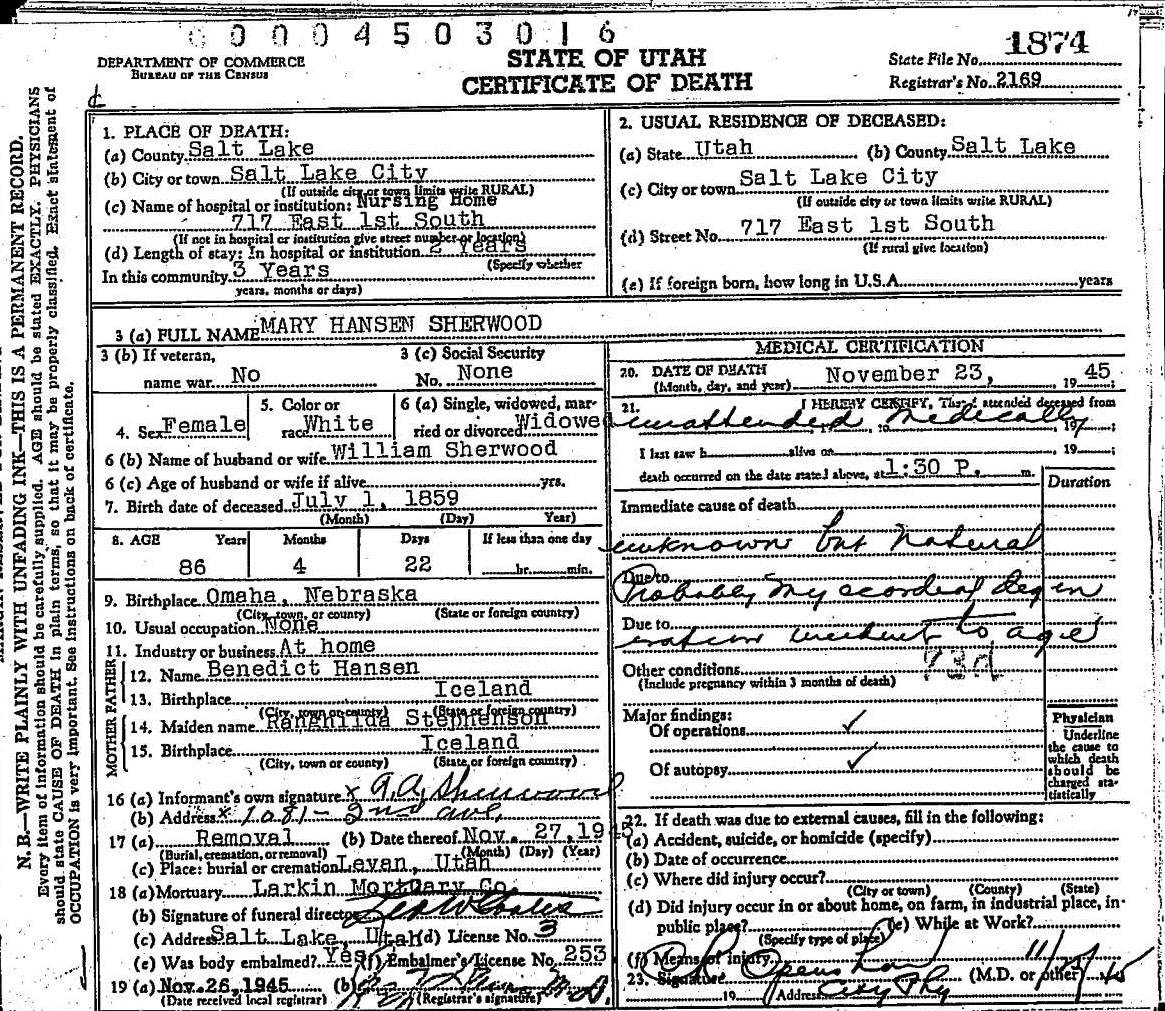 00004503016
DEPARTMENT OF COMMERCE
BUREAU OF THE CENSUS
STATE OF UTAH
CERTIFICATE OF DEATH
State File No. 1874
Registrar's No. 2169
N. B.—WRITE PLAINLY WITH UNFADING INK—THIS IS A PERMANENT RECORD.
Every item of information should be carefully supplied. AGE should be stated EXACTLY. PHYSICIANS
should state CAUSE OF DEATH in plain terms, so that it may be properly classified. Exact statement of
OCCUPATION is very important. See instructions on back of certificate.
1. PLACE OF DEATH:
(a) County Salt Lake
(b) City or town Salt Lake City
(If outside city or town limits write RURAL)
(c) Name of hospital or institution: Nursing Home
717 East 1st South
(If not in hospital or institution give street number or location)
(d) Length of stay: In hospital or institution 2 Years
(Specify whether
In this community 3 Years
years, months or days)
2. USUAL RESIDENCE OF DECEASED:
(a) State Utah (b) County Salt Lake
(c) City or town Salt Lake City
(If outside city or town limits write RURAL)
(d) Street No. 717 East 1st South
(If rural give location)
(e) If foreign born, how long in U.S.A. years
3 (a) FULL NAME MARY HANSEN SHERWOOD
3 (b) If veteran,
name war No
3 (c) Social Security
No. None
4. Sex Female
5. Color or
race White
6 (a) Single, widowed, mar-
ried or divorced Widowed
6 (b) Name of husband or wife William Sherwood
6 (c) Age of husband or wife if alive yrs.
7. Birth date of deceased July 1, 1859
(Month) (Day) Year)
8. AGE Years Months Days If less than one day
86 4 22 hr. min.
9. Birthplace Omaha, Nebraska
(City, town, or county) (State or foreign country)
10. Usual occupation None
11. Industry or business At home
FATHER
12. Name Benedict Hansen
13. Birthplace Iceland
(City, town or county) (State or foreign country)
MOTHER
14. Maiden name Ranghilda Stephenson
15. Birthplace Iceland
(City, town or county) (State, or foreign country)
16 (a) Informant's own signature x A. A. Sherwood
(b) Address x 1081 - 2nd ave,
17 (a) Removal (b) Date thereof Nov. 27, 1945
(Burial, cremation, or removal) (Month) (Day) (Year)
(c) Place: burial or cremation Levan, Utah
18 (a) Mortuary Larkin Mortuary Co.
(b) Signature of funeral director
(c) Address Salt Lake, Utah (d) License No. 3
(e) Was body embalmed? Yes (f) Embalmer's License No. 253
19 (a) Nov. 26, 1945 (b)
(Date received local registrar) (Registrar's signature)
MEDICAL CERTIFICATION
20. DATE OF DEATH
(Month, day, and year) November 23, , 19 45
21. I HEREBY CERTIFY, That I attended deceased from
unattended medically 19
I last saw h alive on , 19 ;
death occurred on the date stated above, at 1:30 P. m.
Duration
Immediate cause of death
unknown but Natural
Due to
Probably Myocordial degen
Due to
eration incident to age
93d
Other conditions
(Include pregnancy within 3 months of death)
Major findings:
Of operations ✓
Of autopsy ✓
Physician
Underline
the cause to
which death
should be
charged sta-
tistically
22. If death was due to external causes, fill in the following:
(a) Accident, suicide, or homicide (specify)
(b) Date of occurrence
(c) Where did injury occur?
(City or town) (County) (State)
(d) Did injury occur in or about home, on farm, in industrial place, in-
public place? (e) While at Work?
(Specify type of place)
(f) Means of injury
23. Signature Openshaw (M.D. or other)
19 Address City Phy